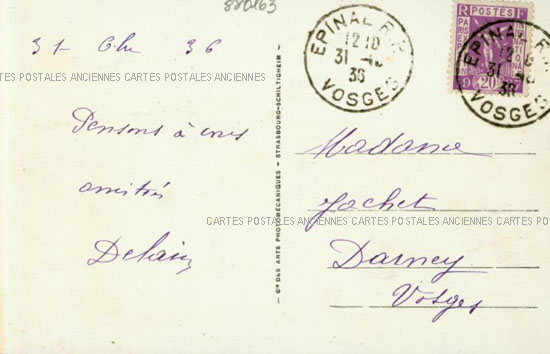 880163
31 36
CARTES POSTALES ANCIENNES CARTES POSTALES ANCIENNES CARTES POSTALES ANCIENNES CARTES POSTALES
Pensons à vous
amitiés
CIE DES ARTS PHOTOMÉCANIQUES - STRASBOURG-SCHILTIGHEIM
EPINAL R.P.
12 10
31
36
VOSGES
POSTES
20
EPINAL
31
36
VOSGES
Madame
Jachet
CARTES POSTALES ANCIENNES CARTES POSTALES ANCIENNES CARTES POSTALES
Darney
Vosges